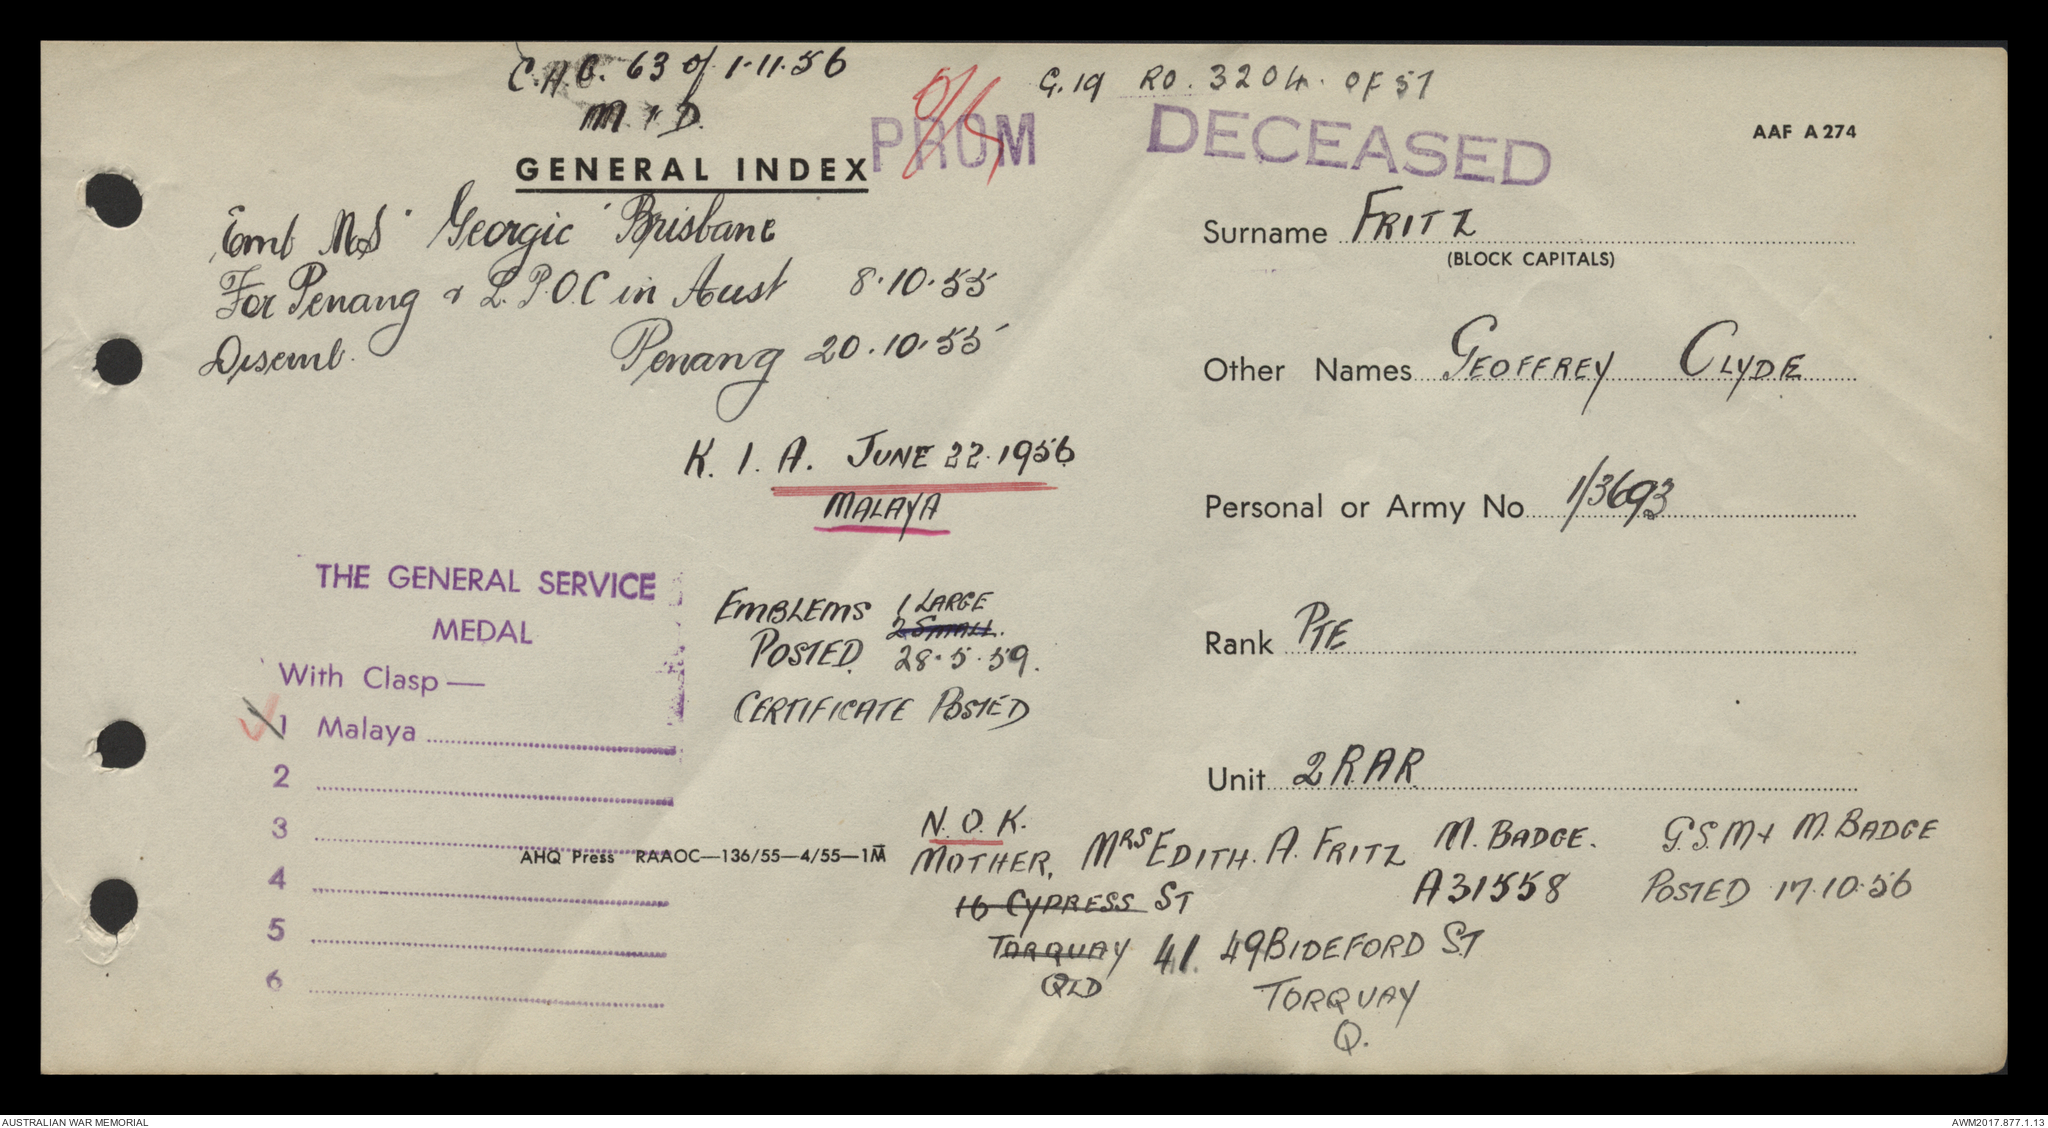 C.A.G. 63 of 1.11.56
M.I.D.
G.19 RO. 3204. OF 57
PROM
DECEASED
AAF A 274
GENERAL INDEX
Emb MS "Georgic" Brisbane
For Penang & L.P.O.C in Aust 8.10.55
Disemb. Penang 20.10.55
K. I. A. JUNE 22.1956
MALAYA
Surname FRITZ
(BLOCK CAPITALS)
Other Names GEOFFREY CLYDE
Personal or Army No 1/3693
Rank PTE
Unit 2 RAR
THE GENERAL SERVICE
MEDAL
With Clasp—
1 Malaya
2
3
4
5
6
EMBLEMS 1 LARGE
2 SMALL.
POSTED 28.5.59.
CERTIFICATE POSTED
AHQ Press RAAOC—136/55—4/55—1M
N.O.K.
MOTHER, MRS EDITH. A. FRITZ
16 CYPRESS ST
TORQUAY 41. 49 BIDEFORD ST
QLD TORQUAY
Q.
M. BADGE. G.S.M + M. BADGE
A31558 POSTED 17.10.56
AUSTRALIAN WAR MEMORIAL
AWM2017.877.1.13